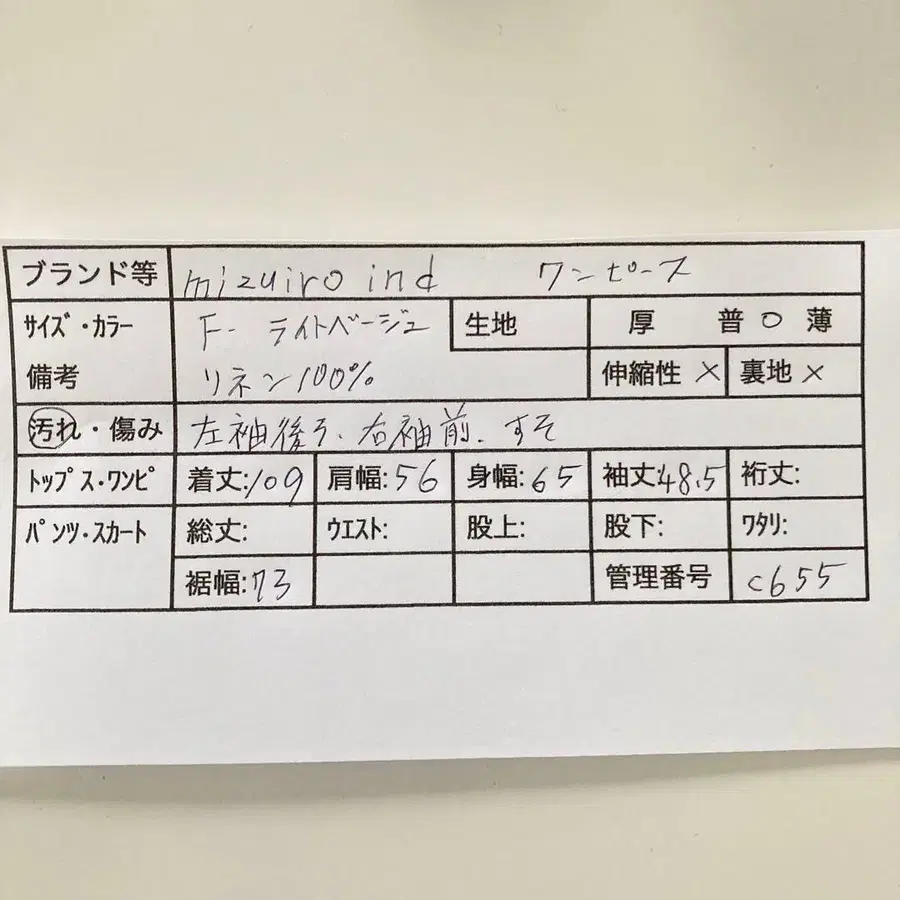 ブランド等 mizuiro ind ワンピース
サイズ・カラー F- ライトベージュ 生地 厚 普○ 薄
備考 リネン100% 伸縮性 × 裏地 ×
汚れ・傷み 左袖後ろ、右袖前、すそ
トップス・ワンピ 着丈:109 肩幅:56 身幅:65 袖丈:48.5 裄丈:
パンツ・スカート 総丈: ウエスト: 股上: 股下: ワタリ:
裾幅:73 管理番号 C655